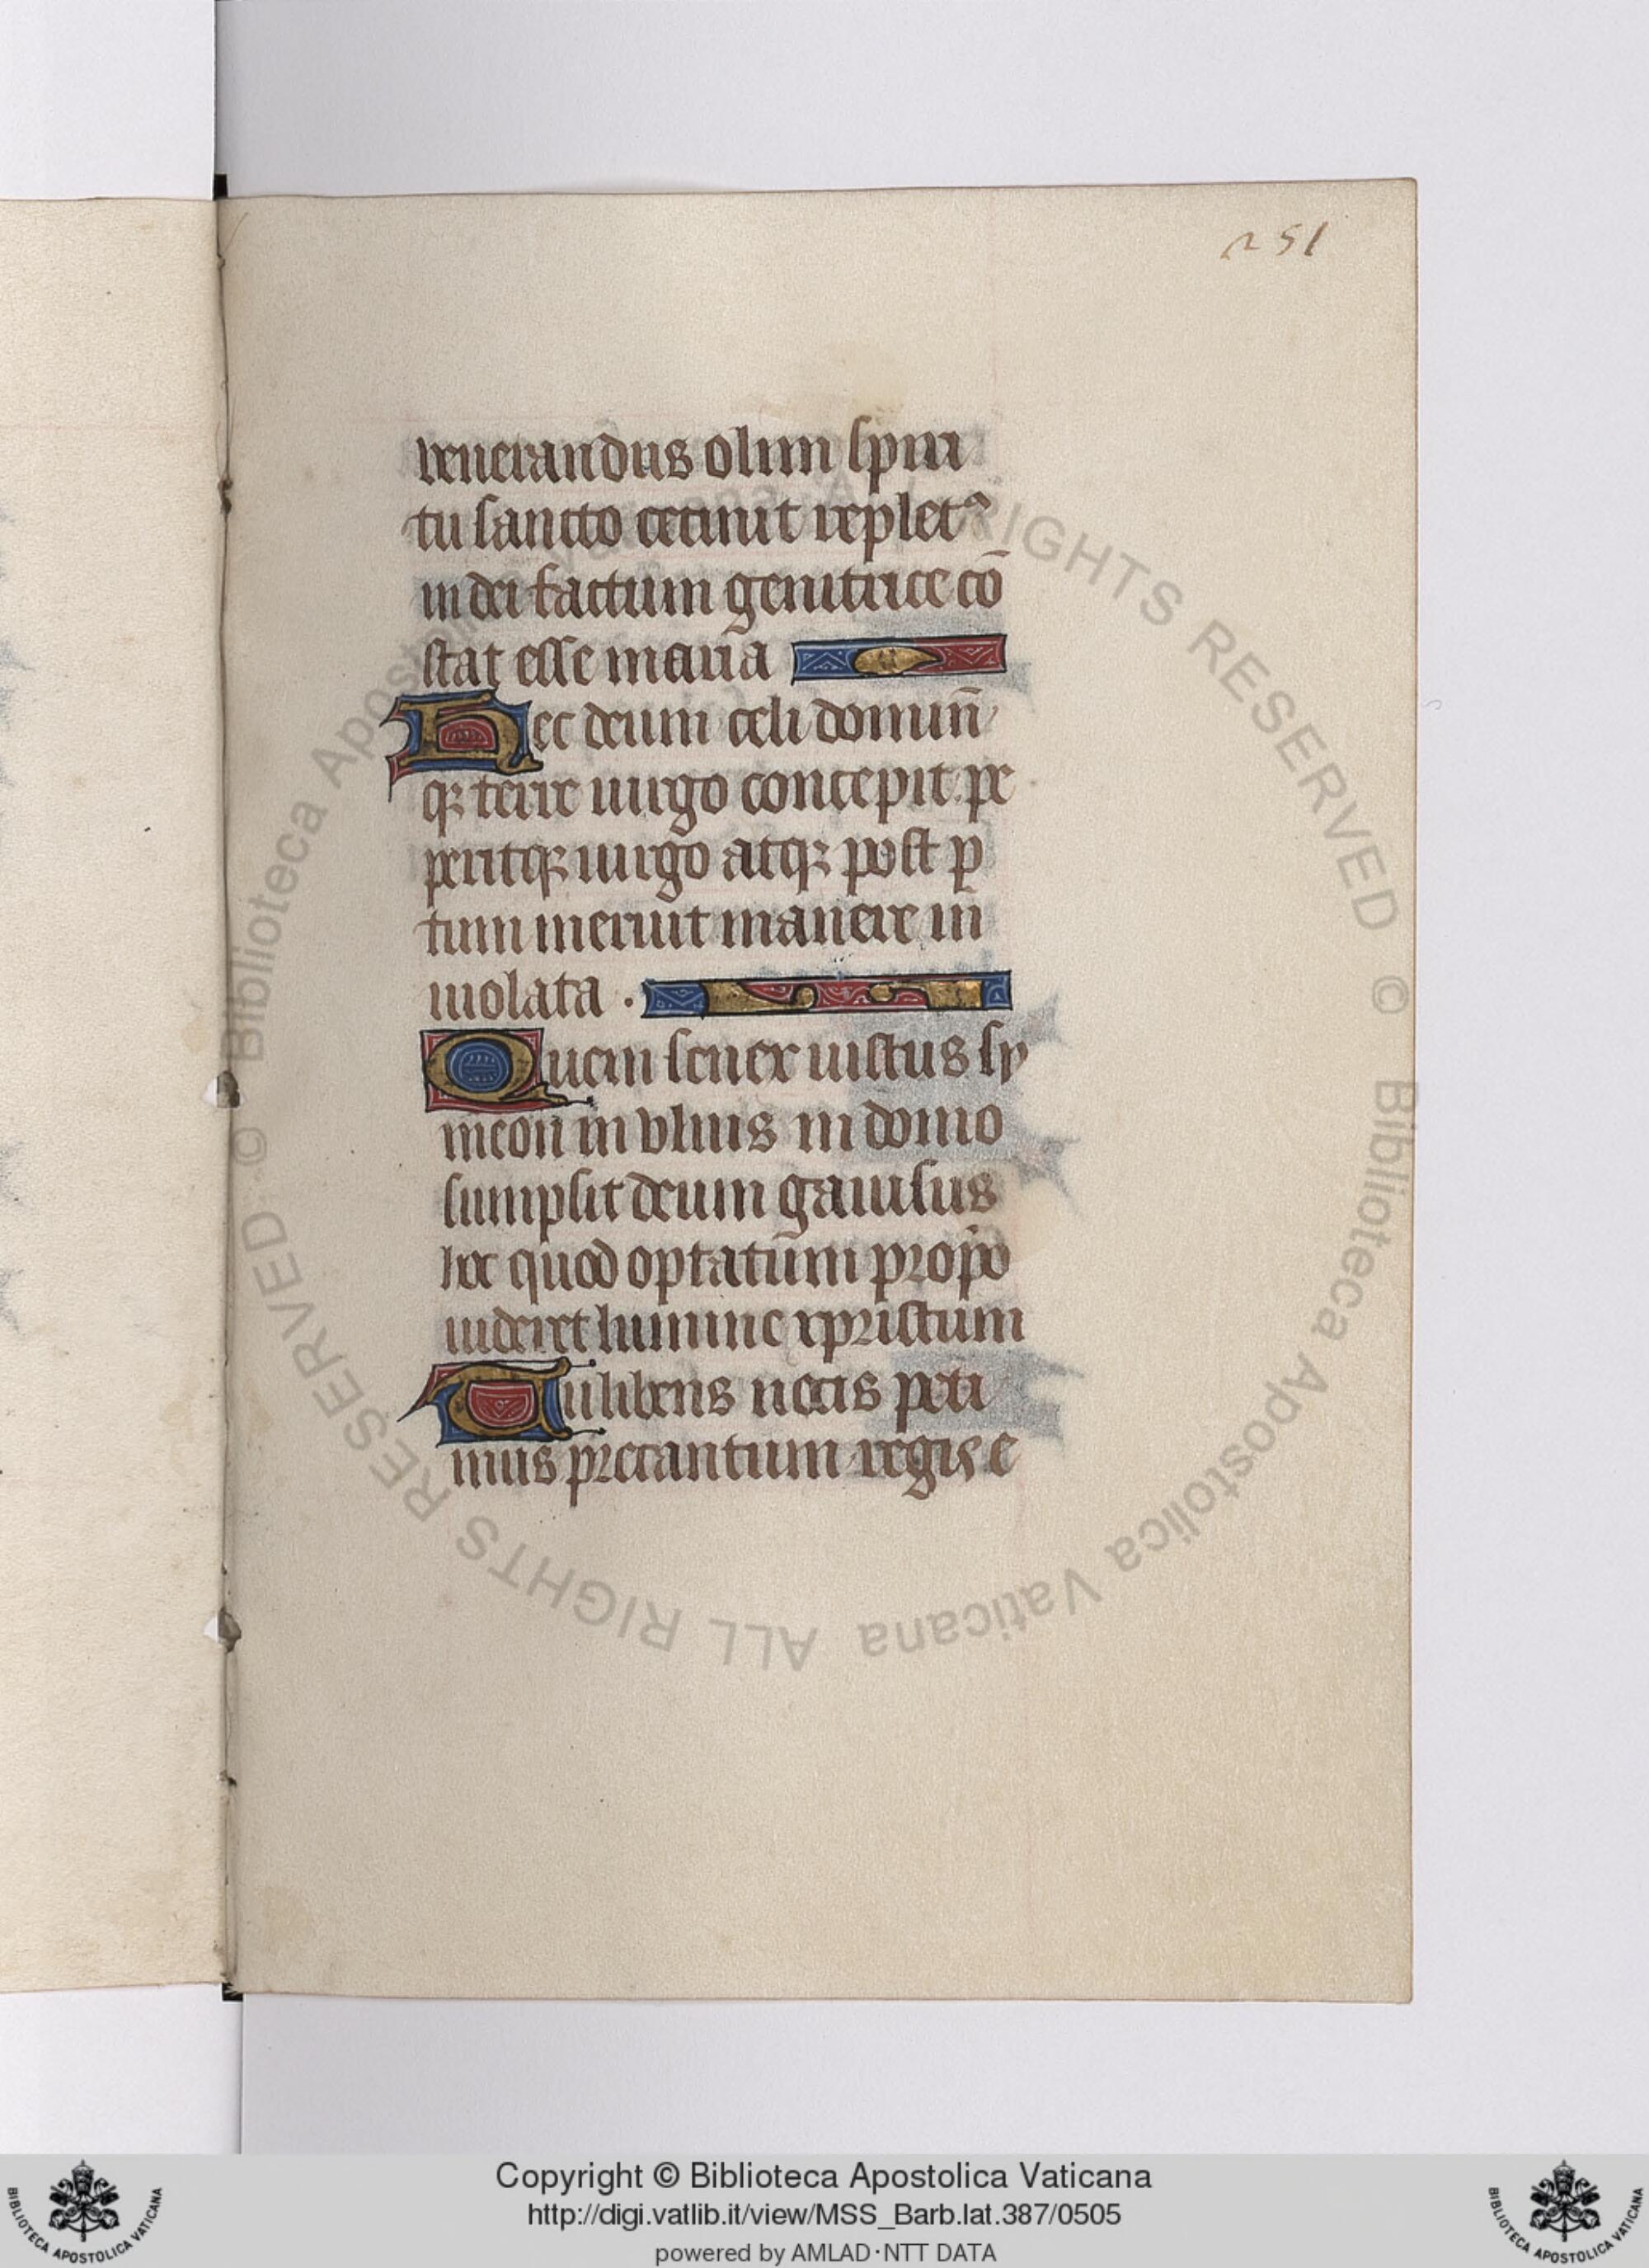 251
venerandus olim spiri
tu sancto cecinit replet᷒
in dei factum genitrice cō
stat esse maria
Hec deum celi dominū
qꝫ terre uirgo concepit pe
peritqꝫ uirgo atqꝫ post p̲
tum meruit manere in
uiolata .
Quem senex iustus sy
meon in vlnis in domo
sumpsit deum gauisus
hoc quod optatum propo
uideret lumine xpristum
Tu libens uotis peti
mus precantum regis e
© Biblioteca Apostolica Vaticana ALL RIGHTS RESERVED © Biblioteca Apostolica Vaticana ALL RIGHTS RESERVED
Copyright © Biblioteca Apostolica Vaticana
http://digi.vatlib.it/view/MSS_Barb.lat.387/0505
powered by AMLAD·NTT DATA
BIBLIOTECA APOSTOLICA VATICANA
BIBLIOTECA APOSTOLICA VATICANA